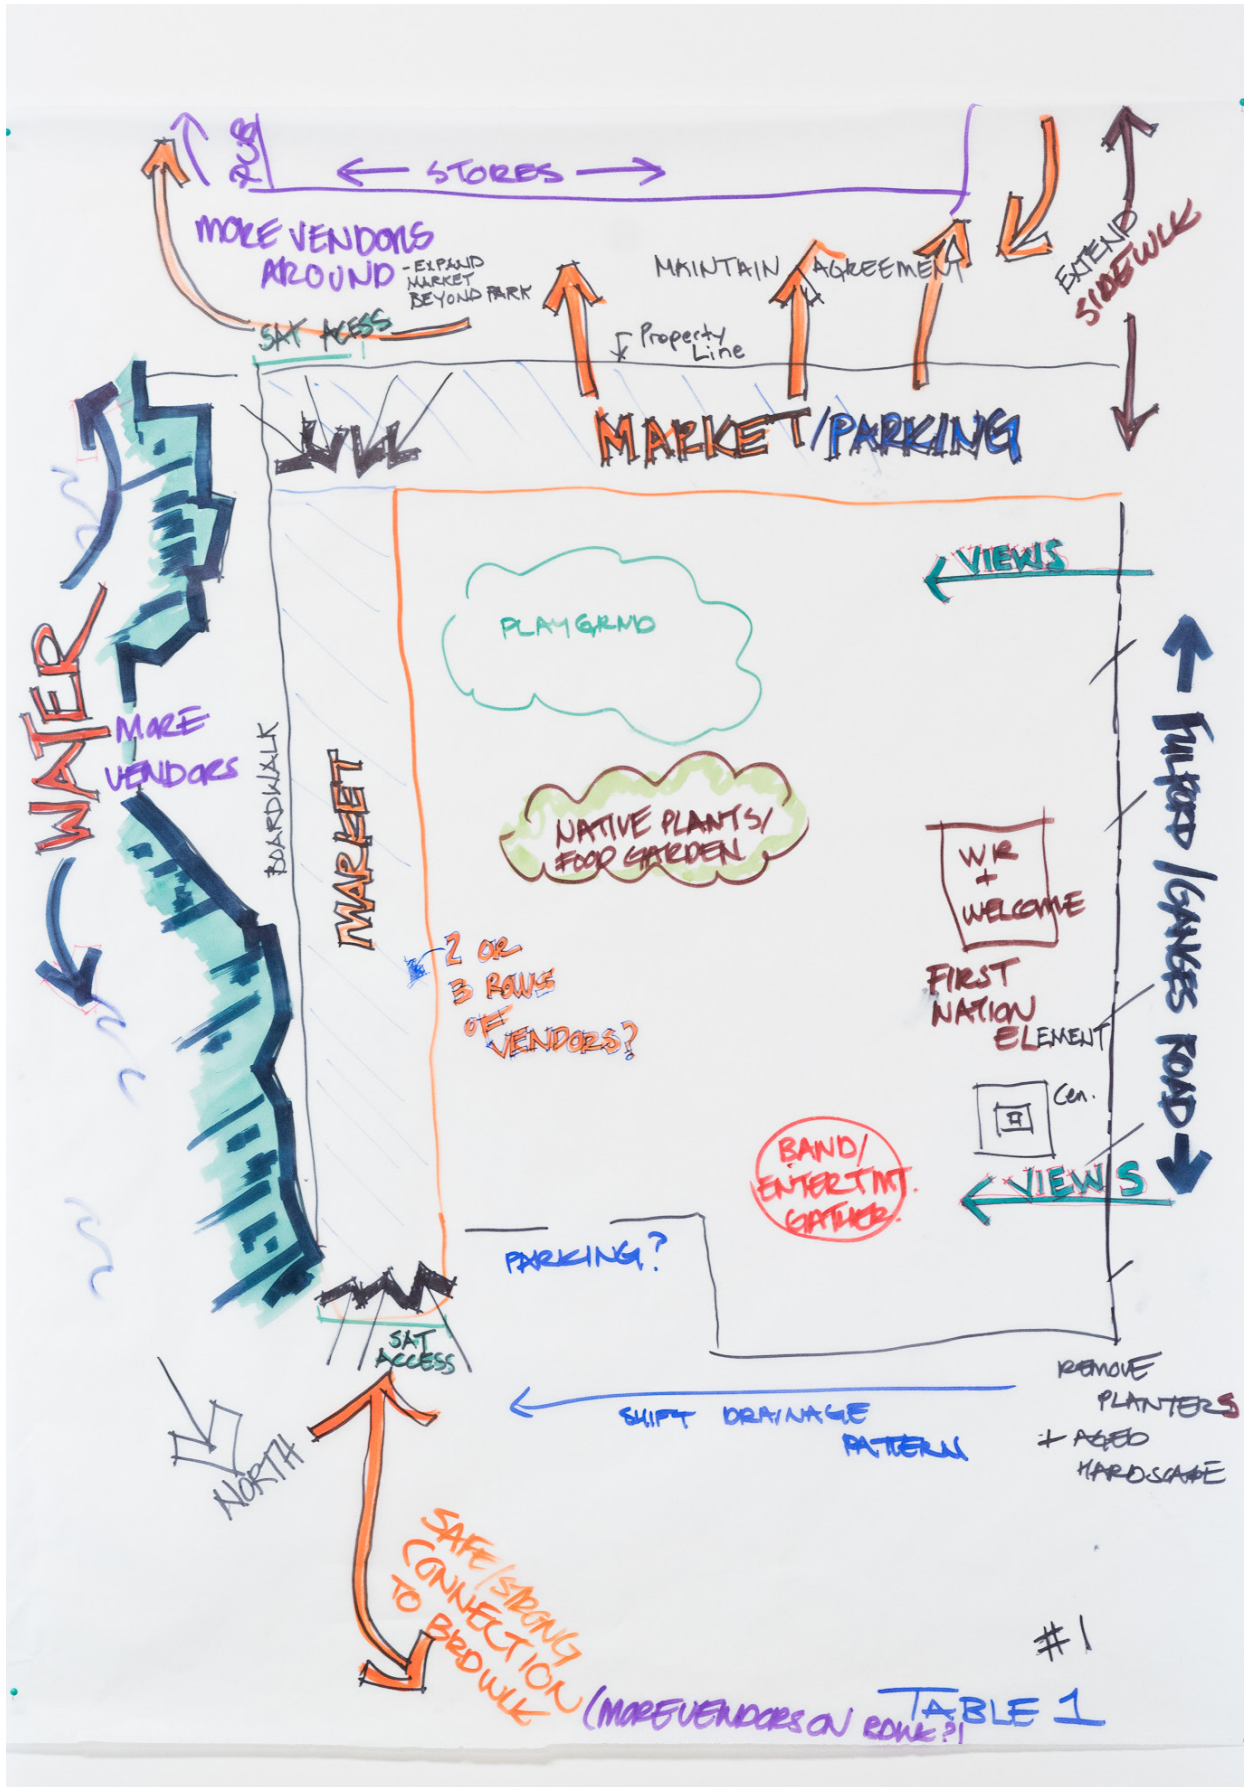 PUB
← STORES →
MORE VENDORS
AROUND
- EXPAND
MARKET
BEYOND PARK
MAINTAIN AGREEMENT
EXTEND
SIDEWLK
SAT ACESS
Property
Line
MARKET/PARKING
VIEWS
PLAYGRND
WATER
MORE
VENDORS
BOARDWALK
MARKET
NATIVE PLANTS/
FOOD GARDEN
FULFORD/GANGES ROAD
WR
+
WELCOME
FIRST
NATION
ELEMENT
2 OR
3 ROWS
OF
VENDORS?
Cen.
BAND/
ENTERTMT.
GATHER.
VIEWS
PARKING?
SAT
ACCESS
SHIFT DRAINAGE
PATTERN
REMOVE
PLANTERS
+ AGED
HARDSCAPE
NORTH
SAFE/STRONG
CONNECTION
TO BRDWLK
(MORE VENDORS ON BDWK?)
#1
TABLE 1